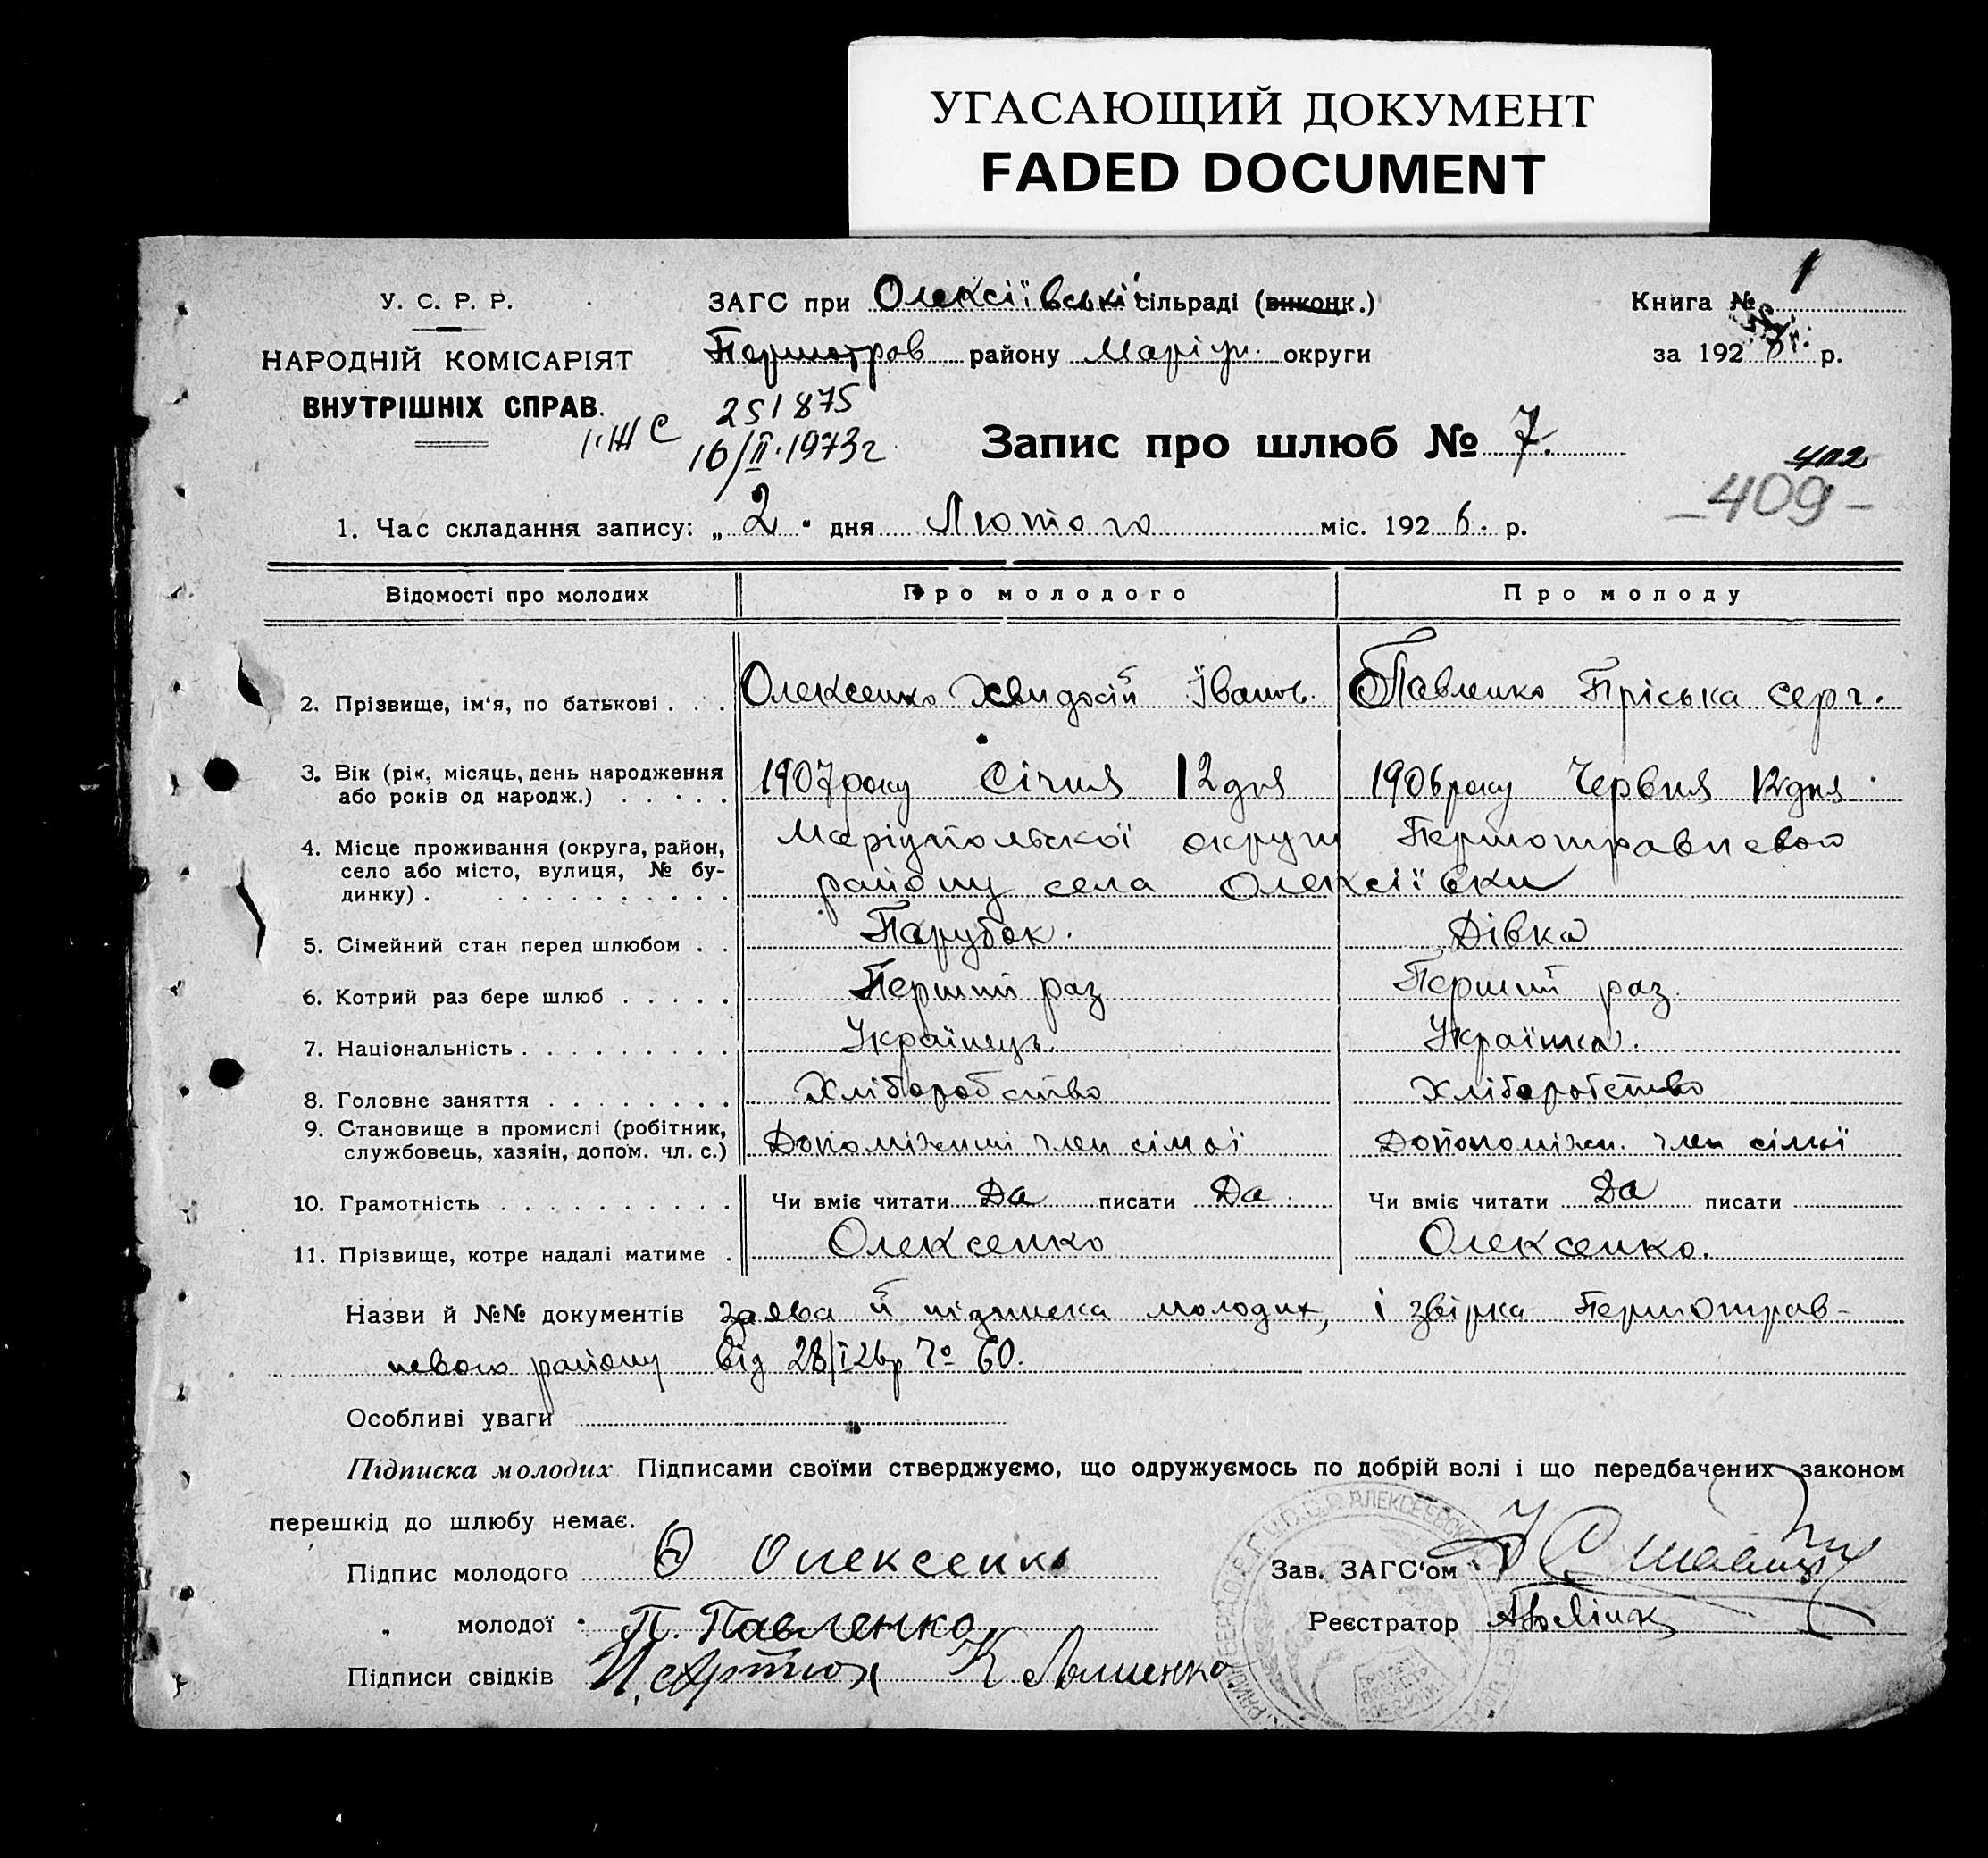 УГАСАЮЩИЙ ДОКУМЕНТ
FADED DOCUMENT
У. С. Р. Р.
НАРОДНІЙ КОМІСАРІЯТ
ВНУТРІШНІХ СПРАВ.
ЗАГС при Олексіївські сільраді (виконк.)
Першотров району Маріуп. округи
Книга № 1
за 192 р.
251875
16/II.1973г
Запис про шлюб № 7.
402
-409-
1. Час складання запису: „2" дня Лютого міс. 1926. р.
Відомості про молодих Про молодого Про молоду
2. Прізвище, ім'я, по батькові . . . Олексенко Хвидосій Іванов. Павленко Пріська Серг.
3. Вік (рік, місяць, день народження або років од народж.) . . . . . 1907 року Січня 12 дня 1906 року Червня 12 дня
4. Місце проживання (округа, район, село або місто, вулиця, № будинку) . . . . . . . . . . . Маріупольської округи Першотравневого
району села Олексіївки
5. Сімейний стан перед шлюбом . . Парубок. Дівка
6. Котрий раз бере шлюб . . . . . Перший раз Перший раз.
7. Національність . . . . . . . . . Українець. Українка.
8. Головне заняття . . . . . . . . Хліборобство Хліборобство
9. Становище в промислі (робітник, службовець, хазяін, допом. чл. с.) Допоміжний член сімьї Допоможн. член сімьї
10. Грамотність . . . . . . . . . . Чи вміє читати Да писати Да. Чи вміє читати Да писати
11. Прізвище, котре надалі матиме . Олексенко Олексенко.
Назви й №№ документів Заява й підписка молодих, і звірка Першотрав-
невого району від 28/I 26р Чо 60.
Особливі уваги
Підписка молодих Підписами своїми стверджуємо, що одружуємось по добрій волі і що передбачених законом
перешкід до шлюбу немає.
Підпис молодого Ѳ Олексенко
Зав. ЗАГС'ом
„ молодої П. Павленко
Реєстратор
Підписи свідків